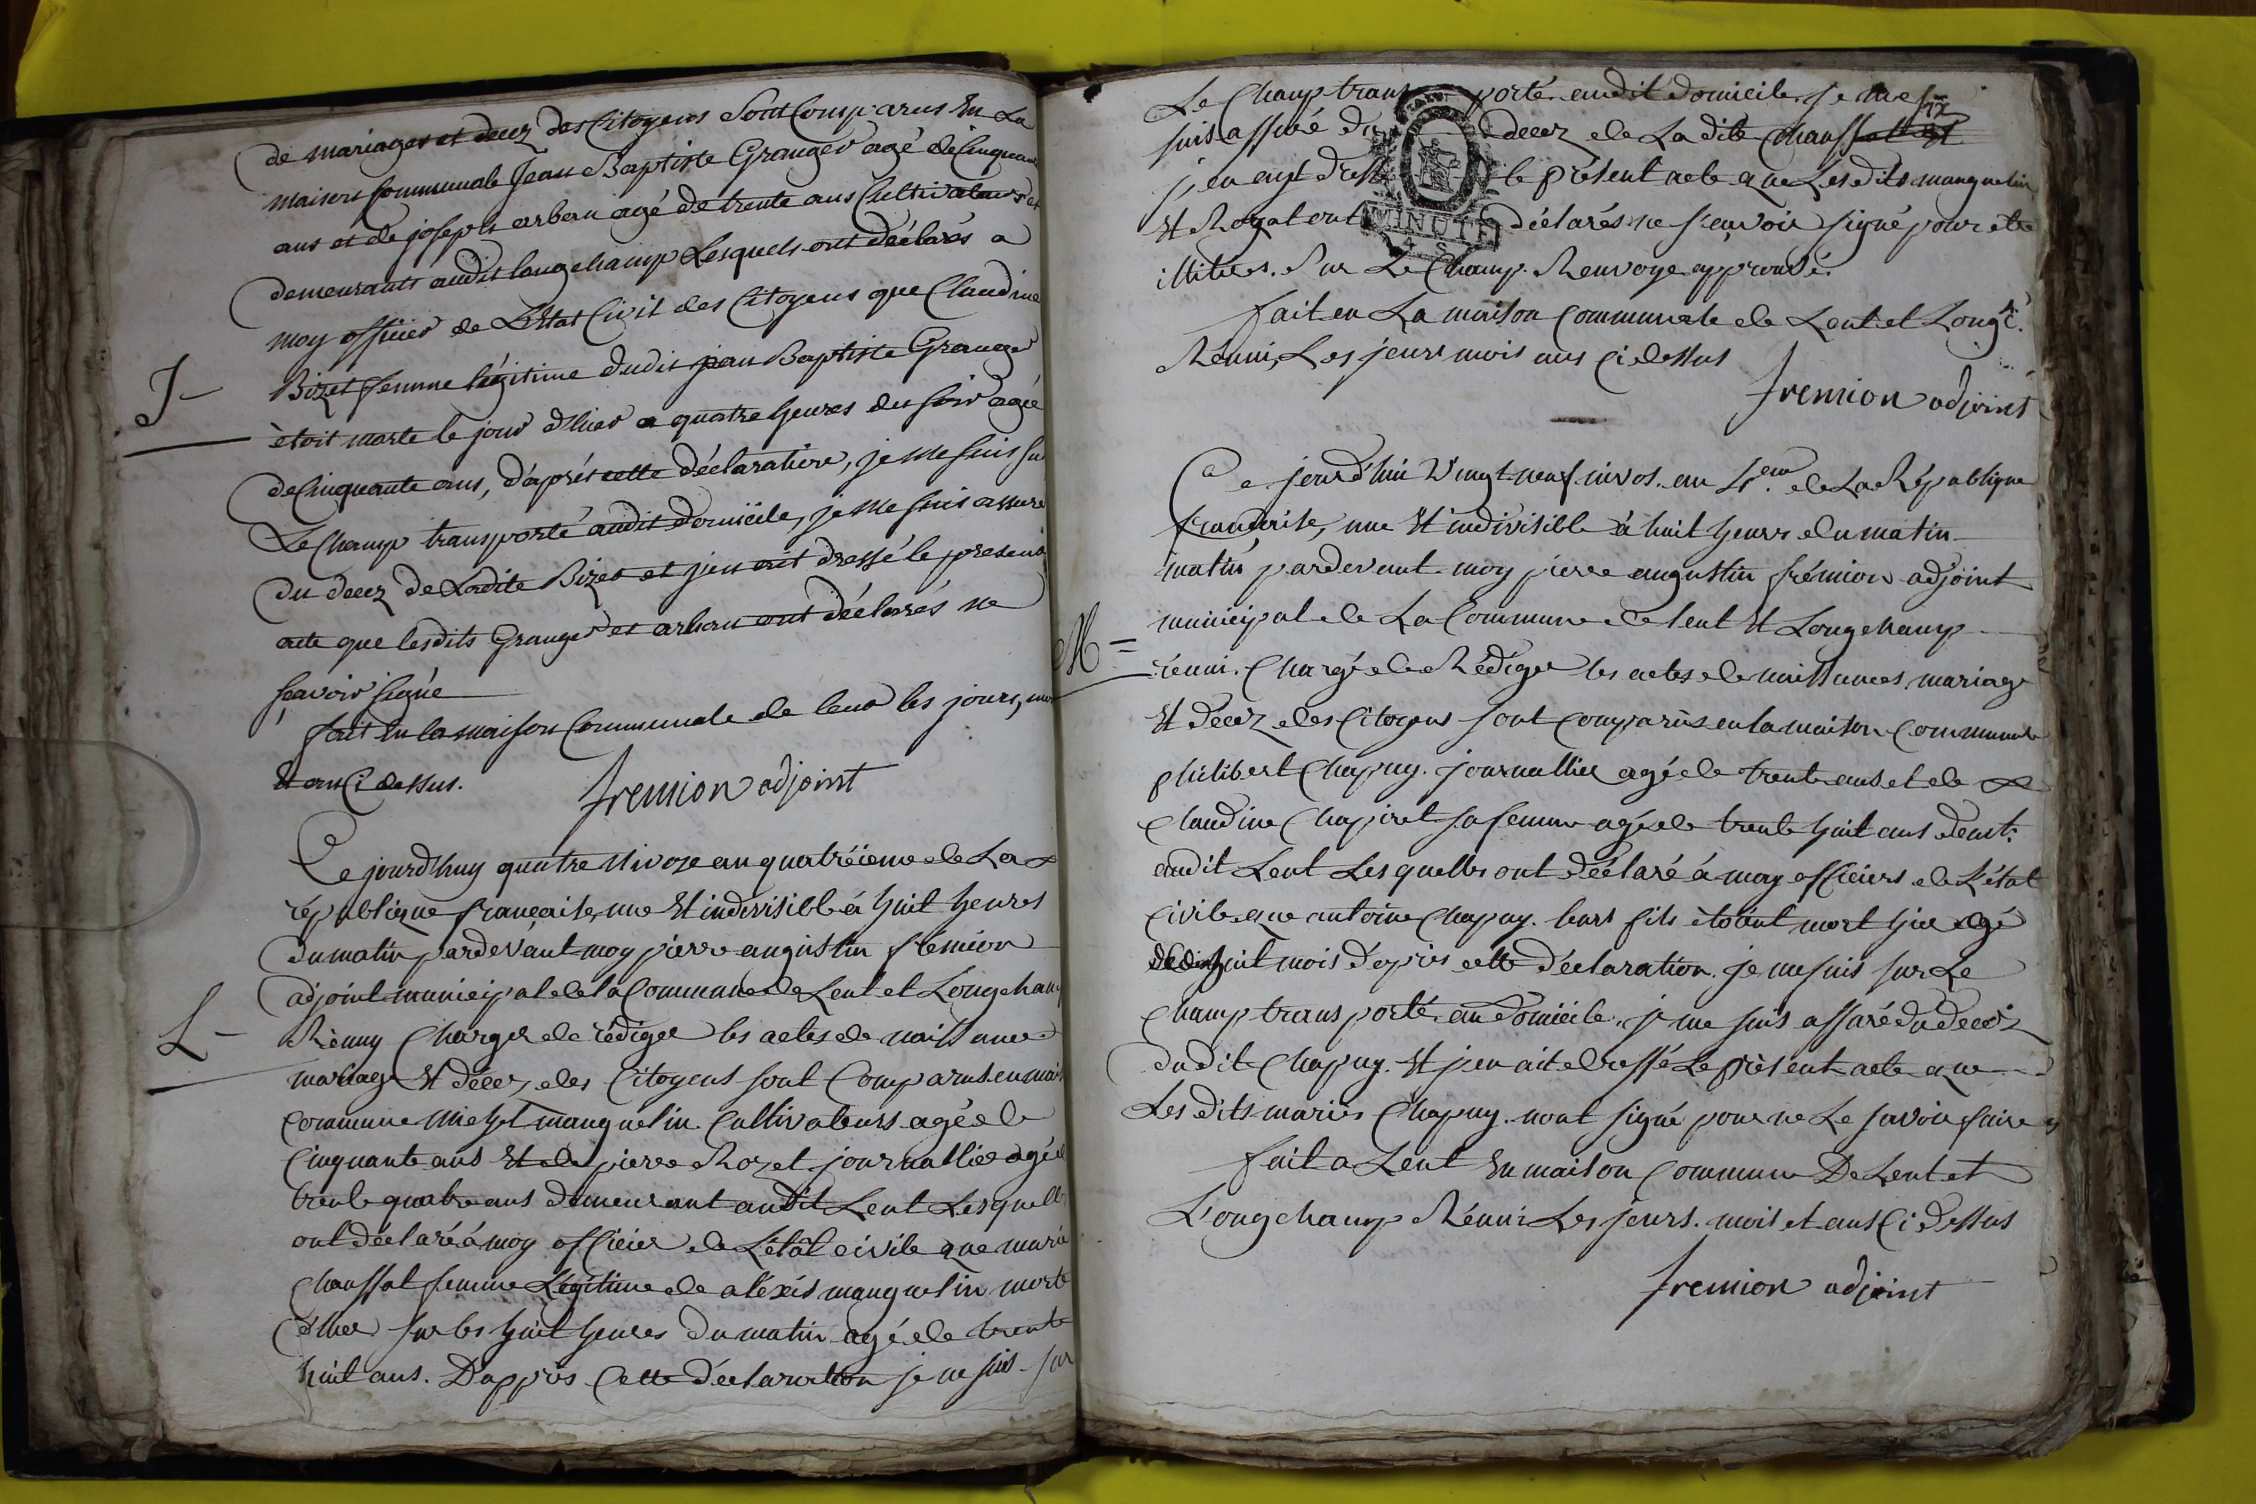 de mariages et decez des Citoyens Sont Comparus En La
maison Communale Jean Baptiste Granger agé de Cinquante
ans et de joseph arban agé de trente ans Cultivateurs
demeurants audit longchamp Lesquels ont déclarés a
moy officier de L'Etat Civil des Citoyens que Claudine
J
Bizet femme légitime dudit jean Baptiste Granger
étoit morte le jour d'hier a quatre heures du soir agée
de Cinquante ans, d'aprés cette déclaration, je me suis sur
Le Champ transporté audit domicile, je me suis assuré
du decez de Ladite Bizet et j'en ait dressé le present
acte que lesdits Granger et arban ont déclarés ne
sçavoir signé
fait En la maison Communale de lent les jours, mois
Et ans Ci dessus.
fremion adjoint
Ce jourd'huy quatre Nivose an quatréieme de La
république française, une Et indivisible à huit heures
du matin pardevant moy pierre augustin fremion
adjoint municipal de la Commune de Lent et Longchamp
L
Rèuny Charger de rédiger les actes de naissances
mariage Et décez, des Citoyens sont Comparus en maison
Commune Michel manguelin Cultivateurs agé de
Cinquante ans Et de pierre Rozet journallier agé de
trente quatre ans demeurant audit Lent Lesquelles
ont déclaré á moy officier de L'état civile que marie
Chaussat femme Légitime de aléxis manguelin morte
d'hier sur les huit heures du matin agé de trente
huit ans. D'apprés Cette déclaration je me suis sur
Le Champ transporté audit domicile, je me
suis assuré du decez de La dite Chaussat Et
j'en ayt dressé le présent acte que Lesdits manguelin
MINUTE
4 S
Et Rozat ont déclarés ne sçavoir signé pour être
illitérés. Sur Le Champ. Renvoye approuvé.
fait en La maison Communale de Lent et Longc.
Réuni, Les jours mois ans Ci dessus
fremion adjoint
Ce jourd'hui Vingt neuf nivos. an 4.eme de La République
française, une Et indivisible à huit heures du matin
matin pardevant moy pierre augustin frémion adjoint
municipal de La Commune de lent Et Longchamp
M
réuni. Chargé de Rédiger les actes de naissances mariage
Et decez des Citoyens sont Comparùs en la maison Communale
philibert Chapuy. journallier agé de trente ans et de
Claudine Chapiret sa femme agé de trente huit ans demt.
audit Lent Lesquelles ont déclaré á moy officiers de L'état
Civile que antoine Chapuy. leurs fils étoint mort hier agé
huit mois d'apprés cette déclaration. je me suis sur Le
Champ transporté au domicile, je me suis assuré du decez
dudit Chapuy. Et j'en ait dressé Le présent acte que
Les dits mariés Chapuy. n'ont signé pour ne Le savoir faire
fait a Lent En maison Commune De Lent et
Longchamp Réuni Les jours. mois et ans Ci dessus
fremion adjoint